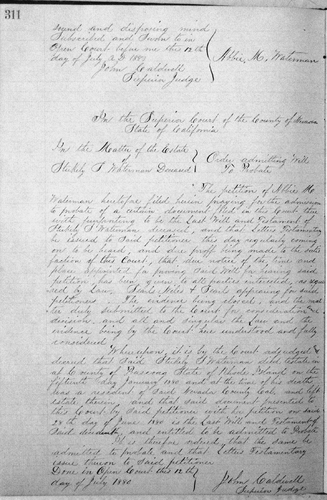 311
sound and disposing mind
Subscribed and Sworn to in
Open Court before me this 12th
day of July A.D. 1880
Abbie M. Waterman
John Caldwell
Superior Judge
In the Superior Court of the County of Nevada
State of California
In the Matter of the Estate
of
Waterman Deceased
Order admitting Will
To Probate
The petition of Abbie M
Waterman heretofore filed herein praying for the admission
to probate of a certain document filed in this Court
purporting to be the Last Will and Testament of
Waterman deceased, and that Letters Testamentary
be issued to Said petitioner, this day regularly coming
on to be heard, and due proof being made to the satis
faction of this Court, that due notice of the time and
place appointed for proving Said Will for hearing said
petition has been given to all parties interested, as requ
ired by Law.
petitioner. The evidence being closed, and the mat
ter duly submitted to the Court for consideration &
decision, and all and singular the law and the
evidence being by the Court here understood and fully
considered
Whereupon, it is by the Court adjudged &
decreed that Said Waterman died testate
at County of State of Rhode Island on the
fifteenth day January 1880 and at the time of his death
was a resident of Said Nevada County
estate therein, and that said document presented to
this Court by Said petitioner with her petition on
28th day of June 1880 is the Last Will and Testament of
Said decedent, and entitled to be admitted to Probate
It is therefore ordered, that the same be
admitted to probate and that Letters Testamentary
issue thereon to Said petitioner
Done in Open Court this 12th
day of July 1880
John Caldwell
Superior Judge